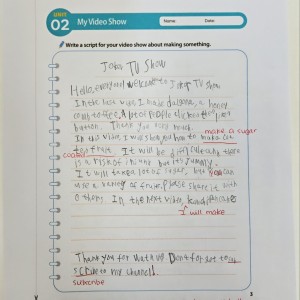 UNIT
02 My Video Show
Name: Date:
Write a script for your video show about making something.
TV Show
Hello, everyone! welcome to TV show
In the last video, I made dalgona, a honey
A lot of people clicked the
button. Thank you very much.
make a sugar
In this video, I will show you how to make a
coated
fruit. It will be difficult and there
is a risk of but it's yummy.
It will take a lot of sugar, but you can
use a variety of fruits, please share it with
others. In the next video,
I will make
Thank you for watching. Don't forget to
to my channel.
subscribe
3